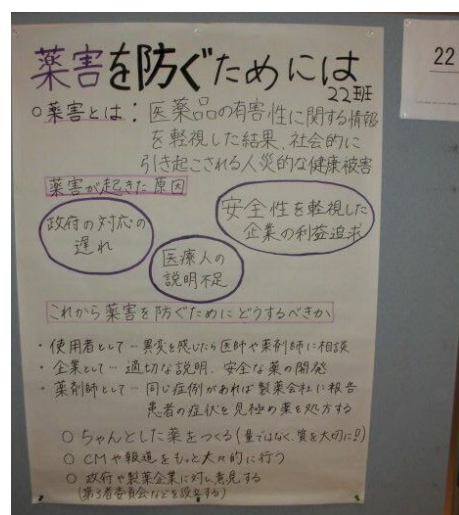 薬害を防ぐためには
22班
○薬害とは：医薬品の有害性に関する情報
を軽視した結果、社会的に
引き起こされる人災的な健康被害
薬害が起きた原因
政府の対応の
遅れ
医療人の
説明不足
安全性を軽視した
企業の利益追求
これから薬害を防ぐためにどうするべきか
・使用者として…異変を感じたら医師や薬剤師に相談
・企業として…適切な説明、安全な薬の開発
・薬剤師として…同じ症例があれば製薬会社に報告
患者の症状を見極め薬を処方する
○ちゃんとした薬をつくる(量ではなく、質を大切に!!)
○CMや報道をもっと大々的に行う
○政府や製薬企業に対し意見する
(第3者委員会などを設立する)
22